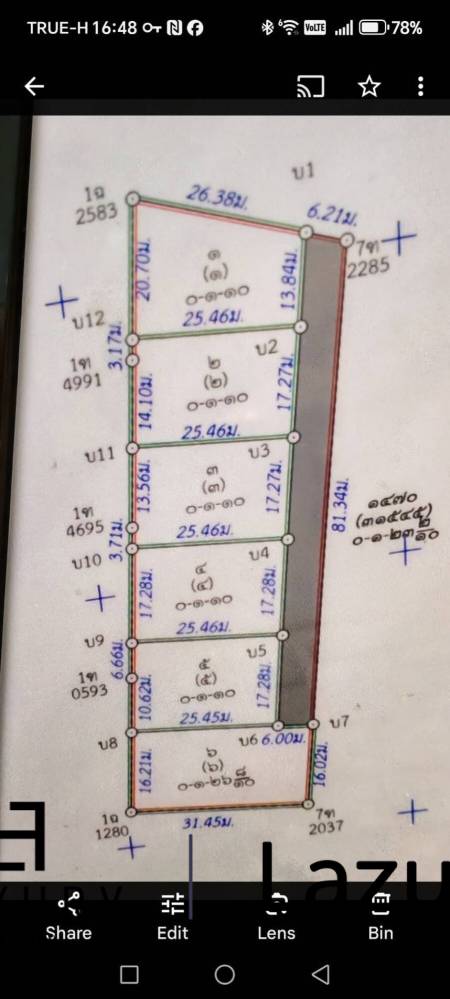 TRUE-H 16:48
VoLTE
78%
บ1
1ฉ
2583
26.38ม.
6.21ม.
7ท
2285
20.70ม.
๑
(๑)
๐-๑-๑๐
13.84ม.
บ12
25.46ม.
3.17ม.
1ท
4991
๒
บ2
(๒)
๐-๑-๑๐
14.10ม.
17.27ม.
25.46ม.
บ11
บ3
13.56ม.
๓
(๓)
๐-๑-๑๐
17.27ม.
81.34ม.
๑๔๗๐
1ท
4695
3.71ม.
25.46ม.
บ10
บ4
17.28ม.
๔
(๔)
๐-๑-๑๐
17.28ม.
25.46ม.
บ9
บ5
6.66ม.
1ท
0593
๕
(๕)
๐-๑-๑๐
10.62ม.
17.28ม.
25.45ม.
บ8
บ6
6.00ม.
บ7
16.21ม.
๖
(๖)
๐-๑-๒๖ ๘/๑๐
16.02ม.
1ฉ
1280
31.45ม.
7ท
2037
Lazu
Share
Edit
Lens
Bin